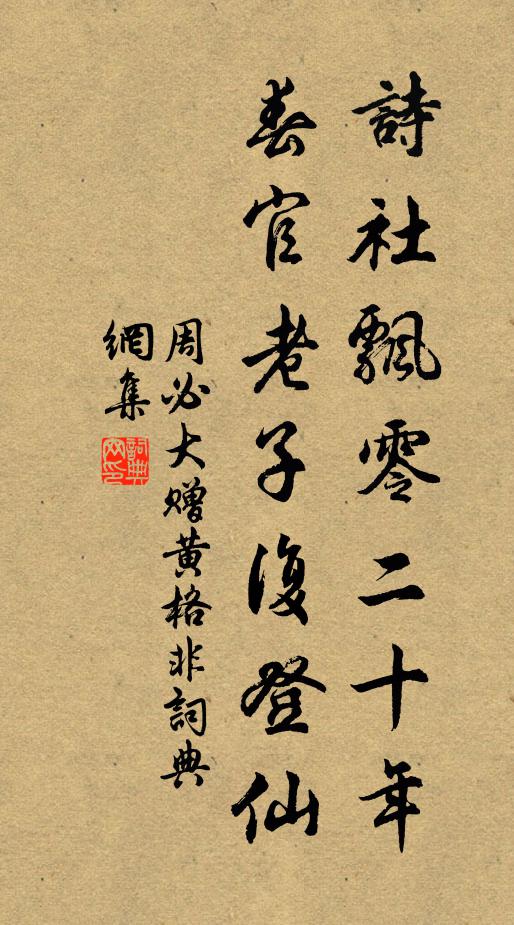 詩社飄零二十年
春官老子復登仙
周必大贈黄格非詞典
網集
詞典
网印